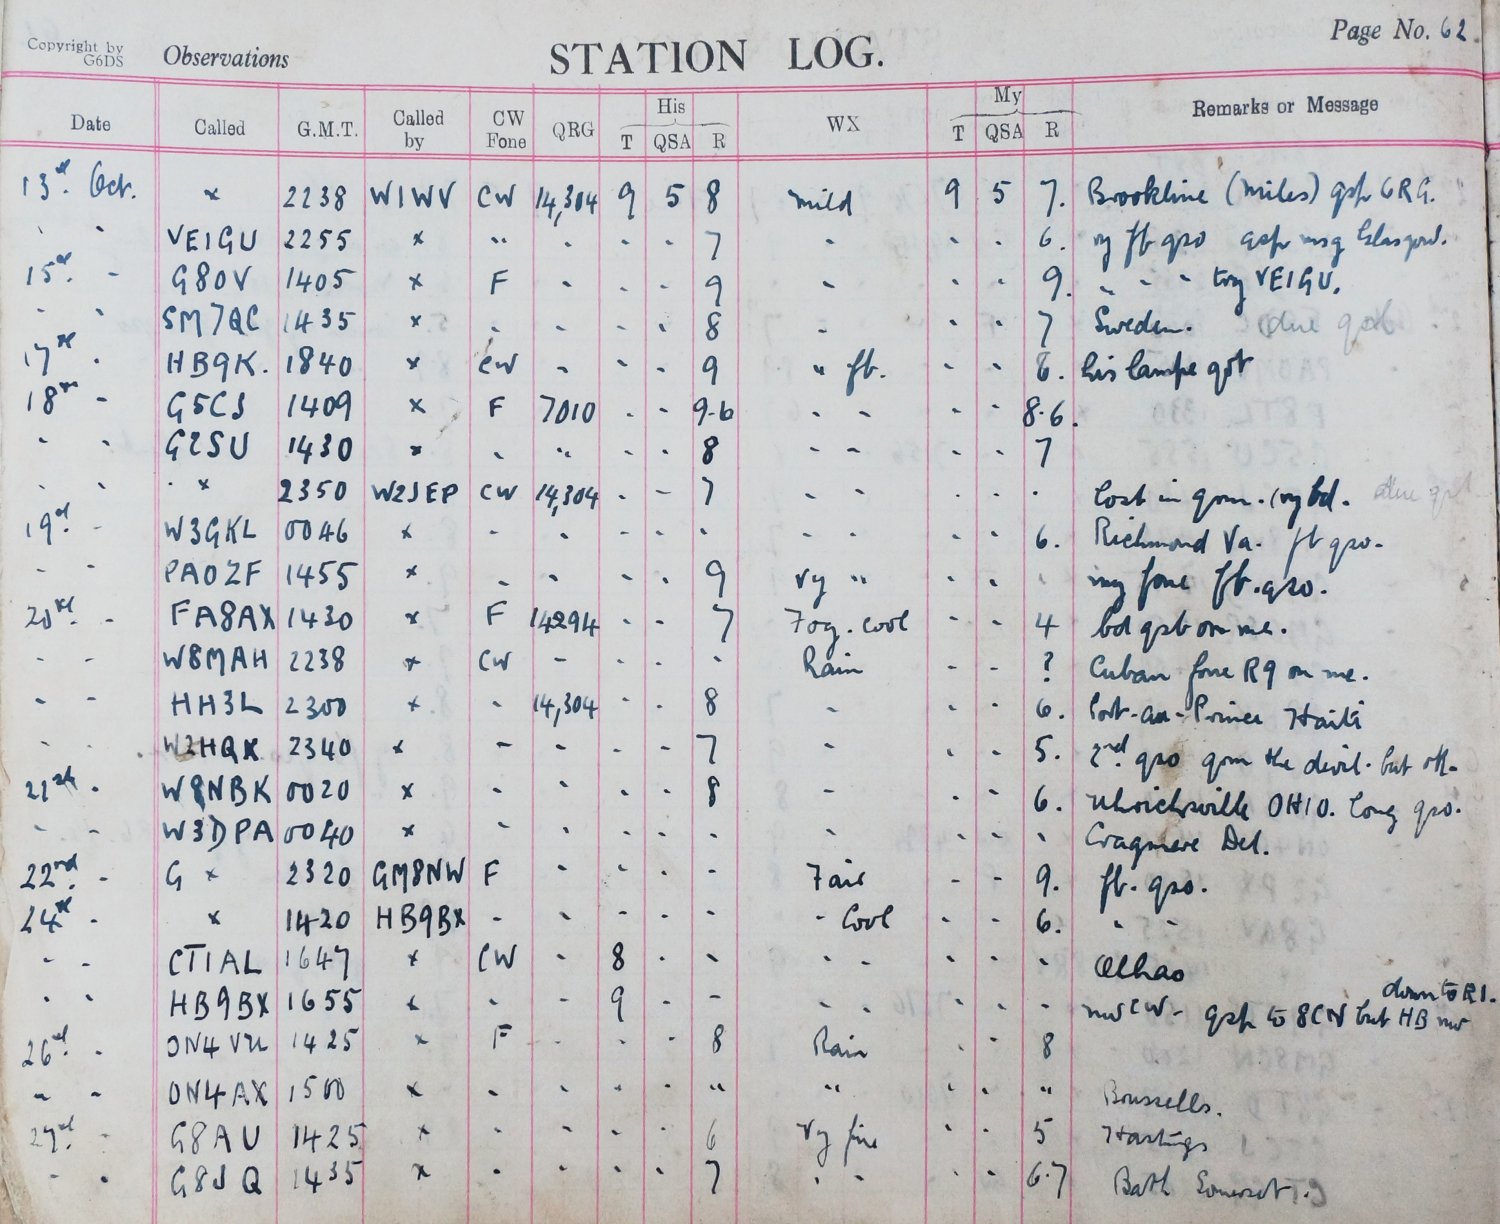 Copyright by G6DS Observations STATION LOG. Page No. 62.
Date Called G.M.T. Called by CW Fone QRG His T QSA R WX My T QSA R Remarks or Message
13th. Oct. x 2238 W1WV CW 14,304 9 5 8 mild 9 5 7. Brookline (miles) qsp 6RG.
" " VE1GU 2255 x " " " " 7 " " " 6. vy fb qso qsp msg Glasgow.
15th. " G8OV 1405 x F " " " 9 " " " 9. " " " try VE1GU.
" " SM7QC 1435 x " " " " 8 " " " 7 Sweden.
17th " HB9K. 1840 x CW " " " 9 " fb. " " 8. his lamps
18th " G5CJ 1409 x F 7010 " " 9-6 " " " " 8-6.
" " G2SU 1430 x " " " " 8 " " " " 7
" " x 2350 W2JEP CW 14,304 " " 7 " " " " " lost in qrm. (vy bd.
19th. " W3GKL 0046 x " " " " " " " " 6. Richmond Va. fb qso.
" " PA0ZF 1455 x " " " " 9 vy " " " " my fone fb. qso.
20th " FA8AX 1430 x F 14294 " " 7 Fog. cool " " 4 bd qsb on me.
" " W8MAH 2238 x CW " " " " Rain " " ? Cuban fone R9 on me.
" " HH3L 2300 x " 14,304 " " 8 " " " 6. Port-au-Prince Haiti
" " W2HQX 2340 x " " " " 7 " " " 5. 2nd qso qrm the devil. but ok.
21st " W8NBK 0020 x " " " " 8 " " " 6. Uhrichsville OHIO. long qso.
" " W3DPA 0040 x " " " " " " " " " Cragmere Del.
22nd. " G x 2320 GM8NW F " " " " Fair " " 9. fb. qso.
24th " x 1420 HB9BX " " " " " " Cool " " 6. " "
" " CT1AL 1647 x CW " 8 " " " " " " " Olhao
" " HB9BX 1655 x " " 9 " " " " " " " nw CW - qsp to 8CN but HB nw down to R1.
26th. " ON4VU 1425 x F " " " 8 Rain " " 8
" " ON4AX 1500 x " " " " " " " " " Brussells.
27th. " G8AU 1425 x " " " " 6 Vy fine " " 5 Hastings
" " G8JQ 1435 x " " " " 7 " " " " 6-7 Bath Somerset.